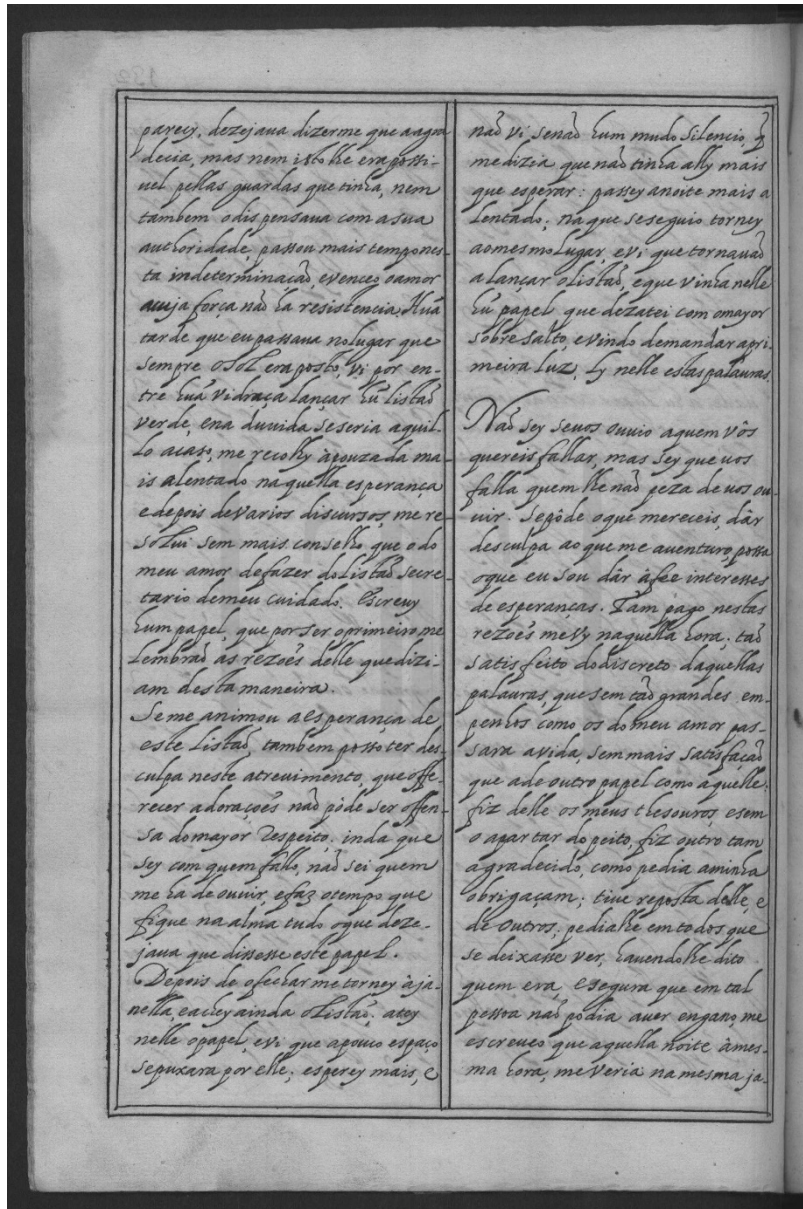 parecy, dezejaua dizerme que a agra
decia, mas nem isto lhe era possi-
uel pellas guardas que tinha, nem
tambem o dispensaua com a sua
authoridade, passou mais tempo nes-
ta indeterminação, e venceo o amor
a cuja força não ha resistencia. Huã
tarde que eu passaua no lugar que
sempre o sol era posto, vi por en-
tre huã vidraça lançar hũ listaõ
verde, e na duuida se seria aquil-
lo acaso, me recolhy à pouzada ma-
is alentado naquella esperança
e depois de varios discursos, me re-
solui sem mais conselho que o do
meu amor de fazer do listaõ secre-
tario de meu cuidado. Escreuy
hum papel, que por ser o primeiro me
lembraõ as rezoẽs delle que dizi-
am desta maneira.
Se me animou a esperança de
este listaõ, tambem posso ter des-
culpa neste atreuimento, que offe-
recer adoraçoẽs não pòde ser offen-
sa do mayor respeito. inda que
sey com quem fallo, naõ sei quem
me ha de ouuir, e faz o tempo que
fique na alma tudo o que deze-
jaua que dissesse este papel.
Depois de o fechar me torney à ja-
nella, e achey ainda o listaõ, atey
nelle o papel, e vi que a pouco espaço
se puxara por elle; esperey mais, e
naõ vi senaõ hum mudo silencio, q̃
me dizia que naõ tinha ally mais
que esperar: passey a noite mais a
lentado; na que se seguio torney
ao mesmo lugar, e vi que tornauaõ
a lançar o listaõ, e que vinha nelle
hũ papel que dezatei com o mayor
sobresalto, e vindo demandar a pri-
meira luz, ly nelle estas palauras.
Naõ sey se uos ouuio a quem vòs
quereis fallar, mas sey que uos
falla quem lhe naõ peza de uos ou-
uir. Se pòde o que mereceis, dàr
desculpa ao que me auenturo, possa
o que eu sou dàr à fee interesses
de esperanças. Tam pago nestas
rezoẽs me vy naquella hora, taõ
satisfeito do discreto daquellas
palauras, que sem taõ grandes em-
penhos como os do meu amor pas-
sara a vida, sem mais satisfaçaõ
que a de outro papel como aquelle:
fiz delle os meus thesouros, e sem
o apartar do peito, fiz outro tam
agradecido, como pedia a minha
obrigaçam; tiue reposta delle, e
de outros. pedialhe em todos que
se deixasse ver, hauendolhe dito
quem era, e segura que em tal
pessoa naõ podia auer engano, me
escreueo que aquella noite à mes-
ma hora, me veria na mesma ja-